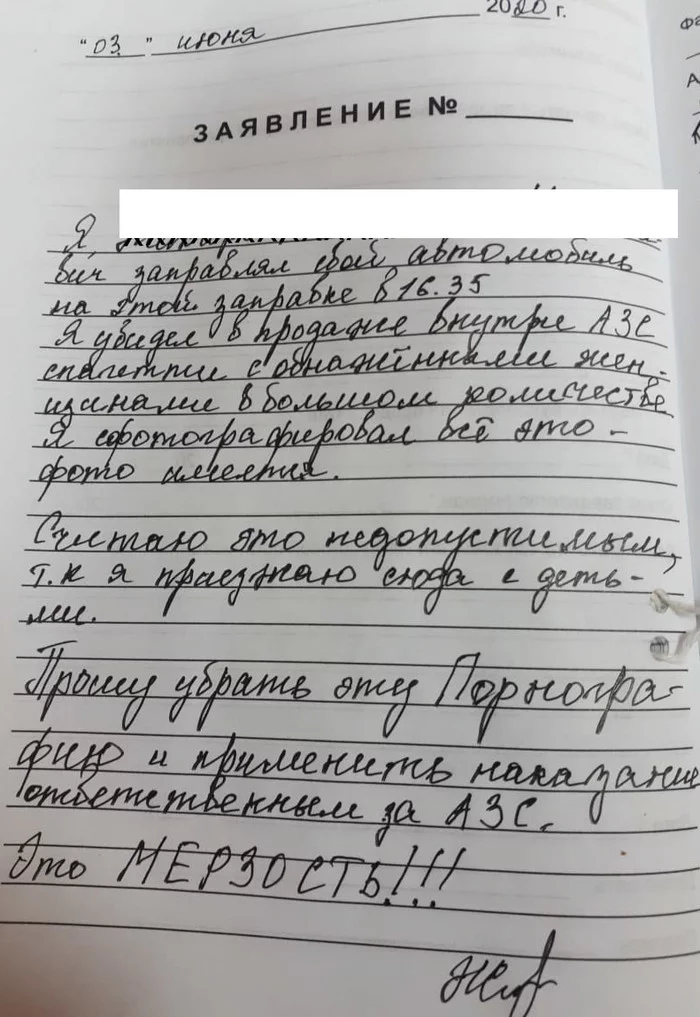 2020 г.
"03" июня
ЗАЯВЛЕНИЕ №
Я
вич заправлял свой автомобиль
на этой заправке в 16.35
Я увидел в продаже внутри АЗС
спагетти с обнажёнными жен-
щинами в большом количестве
Я сфотографировал всё это -
фото имеется.
Считаю это недопустимым,
т.к я приезжаю сюда с деть-
ми.
Прошу убрать эту Порногра-
фию и применить наказание
ответственным за АЗС.
Это МЕРЗОСТЬ!!!